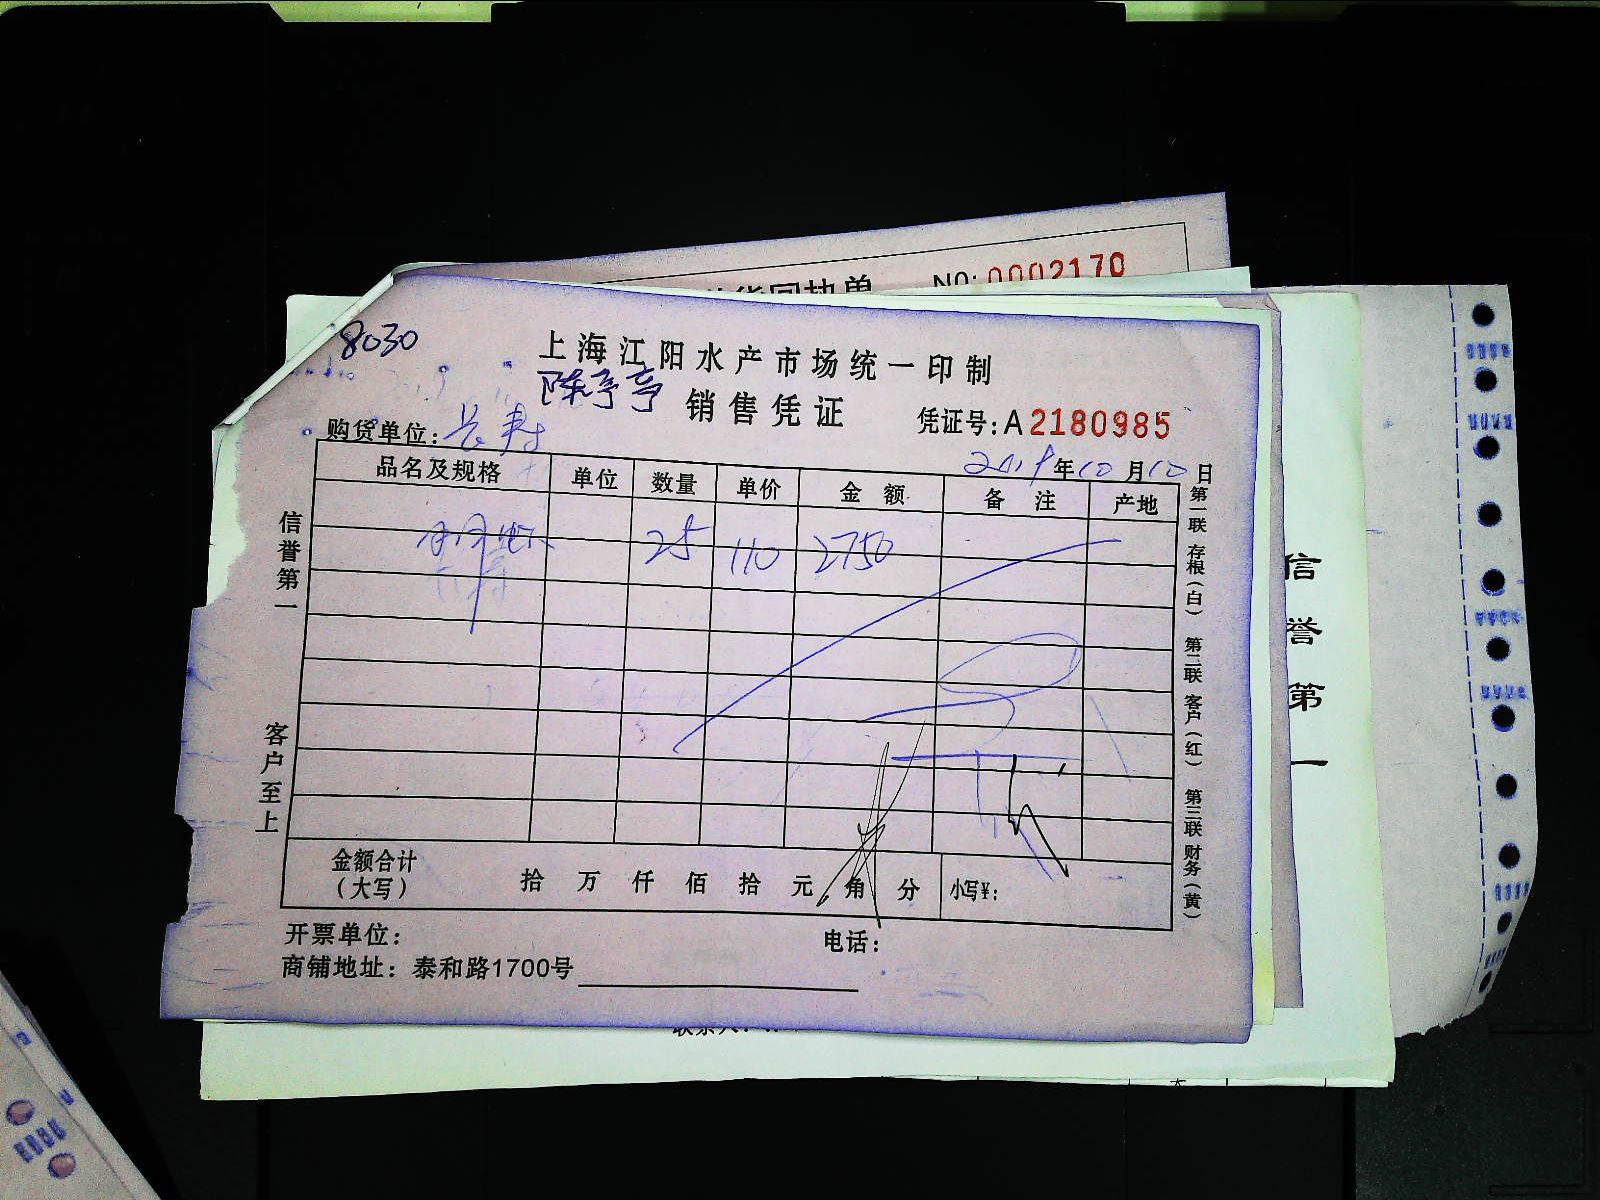 NO: 0002170
8030
上海江阳水产市场统一印制
陈亭亭
销售凭证
凭证号: A 2180985
购货单位: 长寿
2019年10月10日
品名及规格 单位 数量 单价 金额 备注 产地
25 110 2750
金额合计（大写） 拾 万 仟 佰 拾 元 角 分 小写¥:
开票单位: 电话:
商铺地址: 泰和路1700号
信誉第一
客户至上
第一联 存根（白） 第二联 客户（红） 第三联 财务（黄）
信誉第一